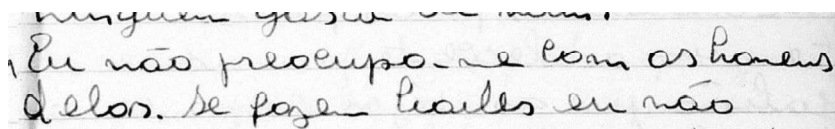 ninguem gosta de mim.
Eu não preocupo-me com os homens
delas. Se fazem bailes eu não